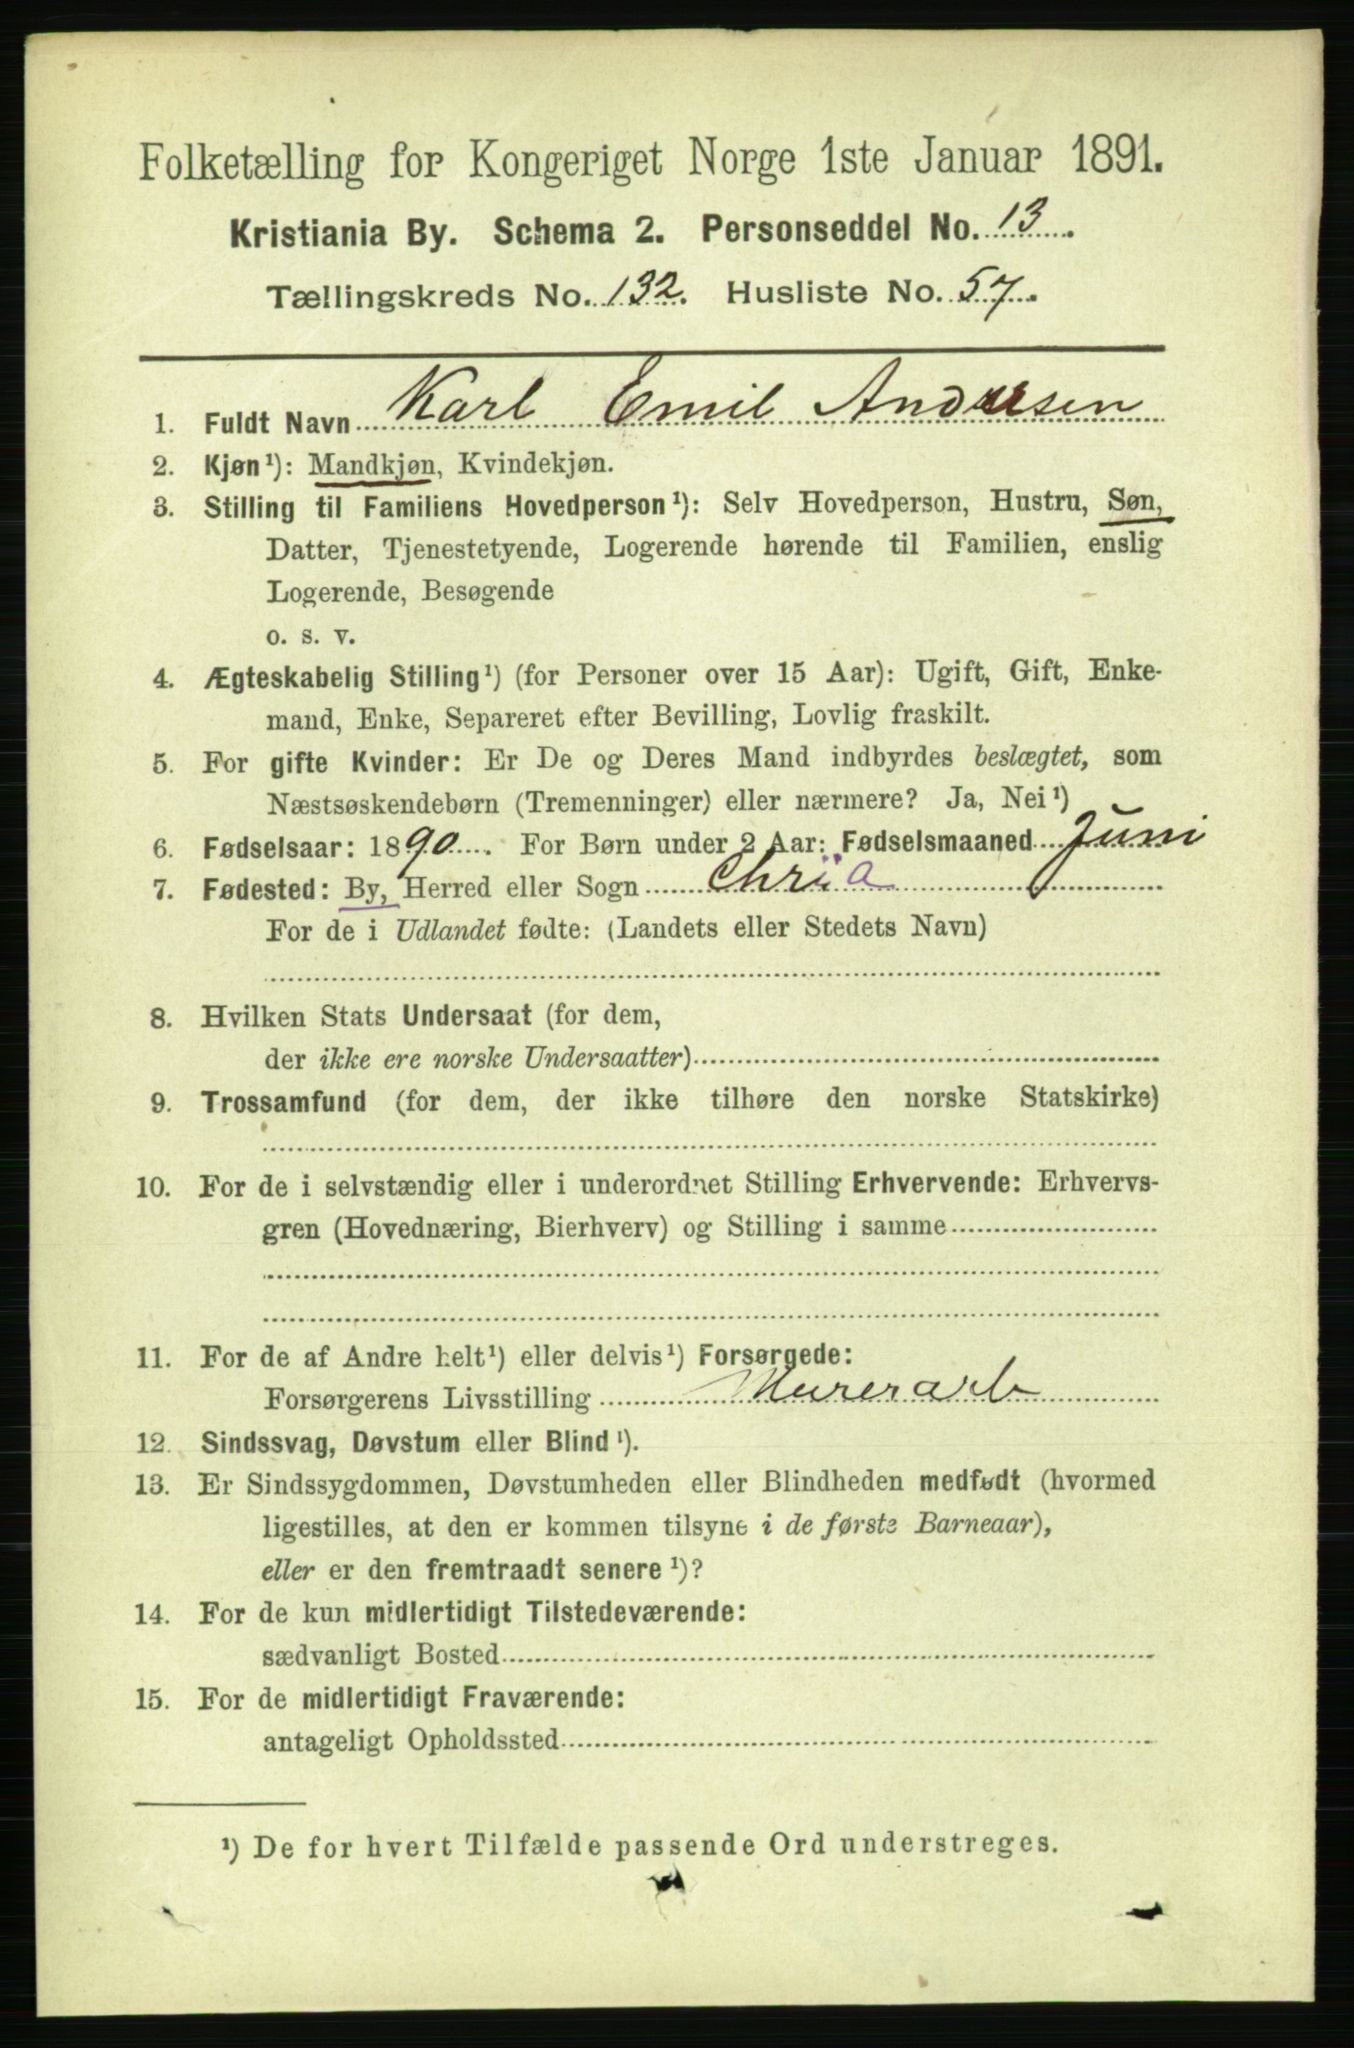 Folketælling for Kongeriget Norge 1ste Januar 1891.
Kristiania By. Schema 2. Personseddel No. 13.
Tællingskreds No. 132. Husliste No. 57.
1. Fuldt Navn Karl Emil Andersen
2. Kjøn¹): Mandkjøn, Kvindekjøn.
3. Stilling til Familiens Hovedperson¹): Selv Hovedperson, Hustru, Søn,
Datter, Tjenestetyende, Logerende hørende til Familien, enslig
Logerende, Besøgende
o. s. v.
4. Ægteskabelig Stilling¹) (for Personer over 15 Aar): Ugift, Gift, Enke-
mand, Enke, Separeret efter Bevilling, Lovlig fraskilt.
5. For gifte Kvinder: Er De og Deres Mand indbyrdes beslægtet, som
Næstsøskendebørn (Tremenninger) eller nærmere? Ja, Nei¹)
6. Fødselsaar: 1890. For Børn under 2 Aar: Fødselsmaaned Juni
7. Fødested: By, Herred eller Sogn Chria
For de i Udlandet fødte: (Landets eller Stedets Navn)
8. Hvilken Stats Undersaat (for dem,
der ikke ere norske Undersaatter)
9. Trossamfund (for dem, der ikke tilhøre den norske Statskirke)
10. For de i selvstændig eller i underordnet Stilling Erhvervende: Erhvervs-
gren (Hovednæring, Bierhverv) og Stilling i samme
11. For de af Andre helt¹) eller delvis¹) Forsørgede:
Forsørgerens Livsstilling Murerarb
12. Sindssvag, Døvstum eller Blind¹).
13. Er Sindssygdommen, Døvstumheden eller Blindheden medfødt (hvormed
ligestilles, at den er kommen tilsyne i de første Barneaar),
eller er den fremtraadt senere¹)?
14. For de kun midlertidigt Tilstedeværende:
sædvanligt Bosted
15. For de midlertidigt Fraværende:
antageligt Opholdssted
¹) De for hvert Tilfælde passende Ord understreges.